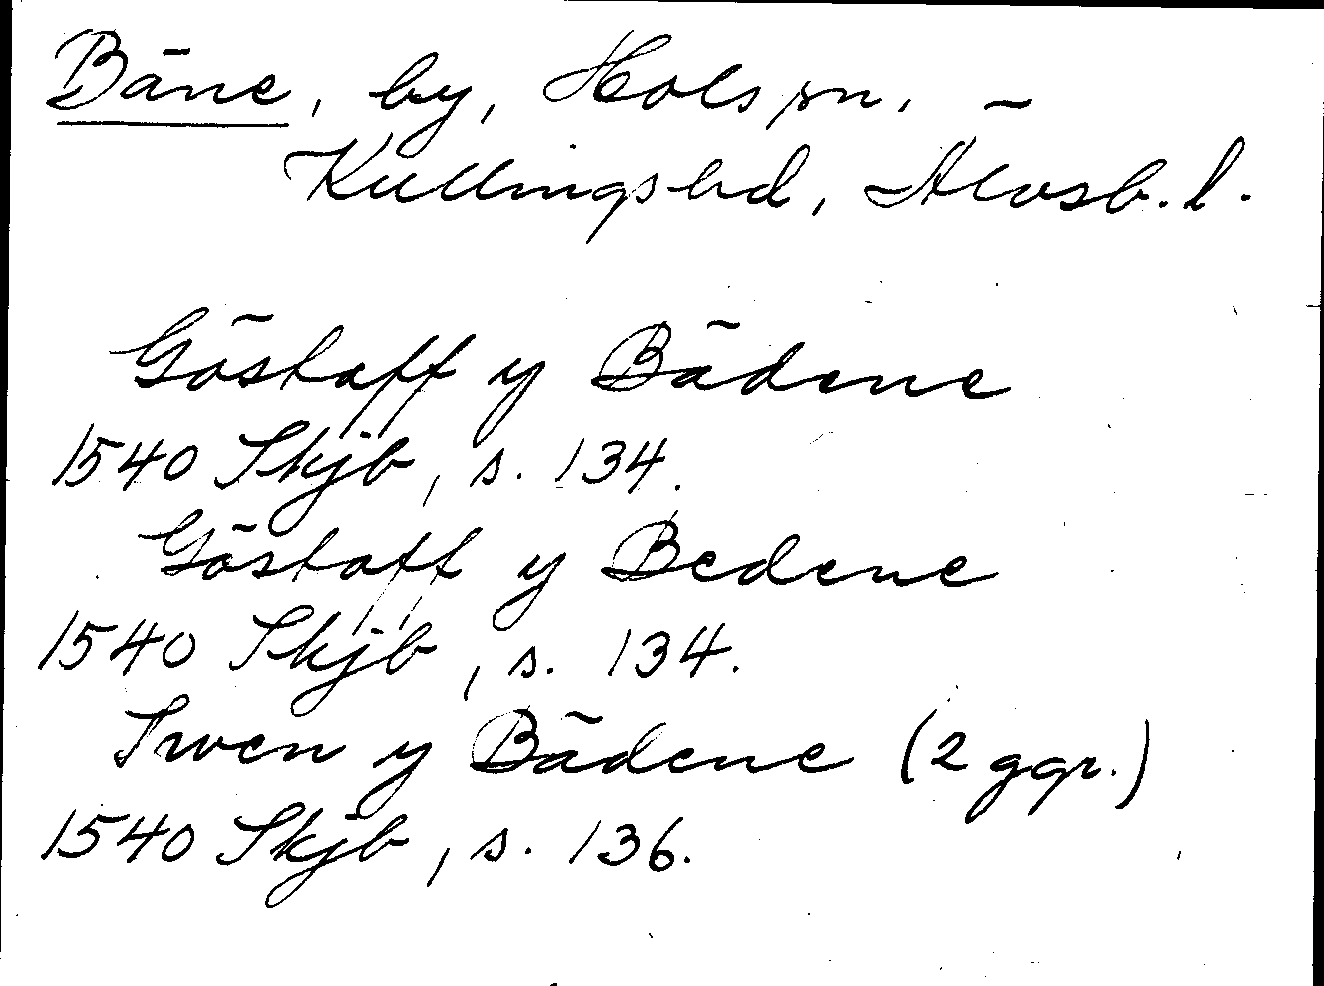 Bäne, by, Hols sn,
Kullings hd, Älvsb. l.
Göstaff y Bädene
1540 Skjb, s. 134.
Göstaff y Bedene
1540 Skjb, s. 134.
Swen y Bädene (2 ggr.)
1540 Skjb, s. 136.